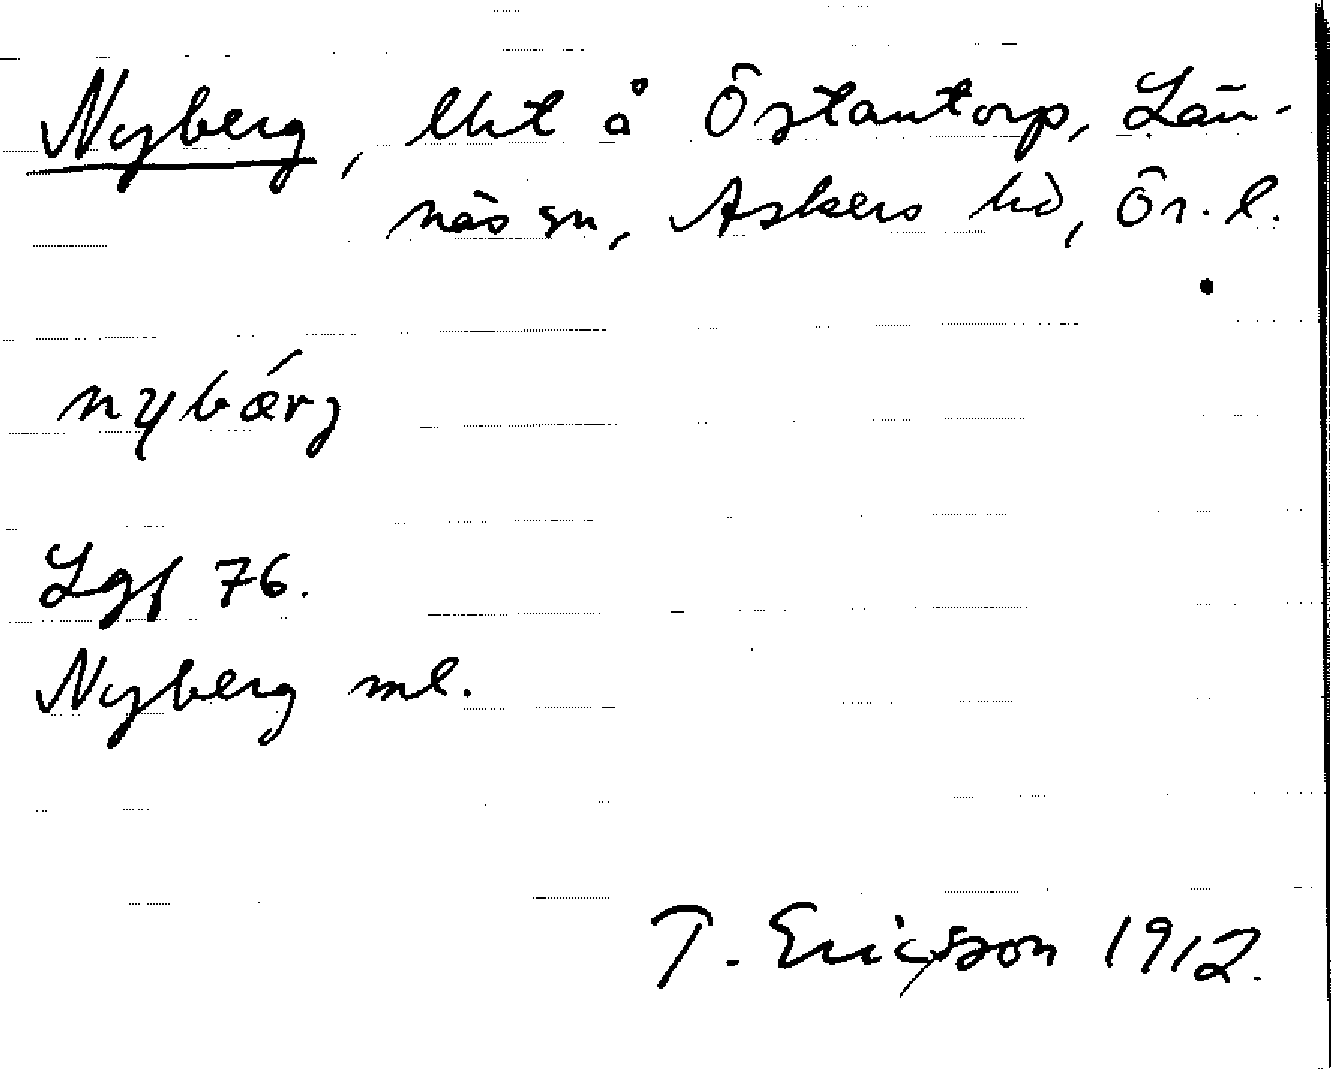 Nyberg, lht å Östantorp, Län-
näs sn, Askers hd, Ör. l.
nybǽrj
Lgf 76.
Nyberg ml.
T. Ericsson 1912.